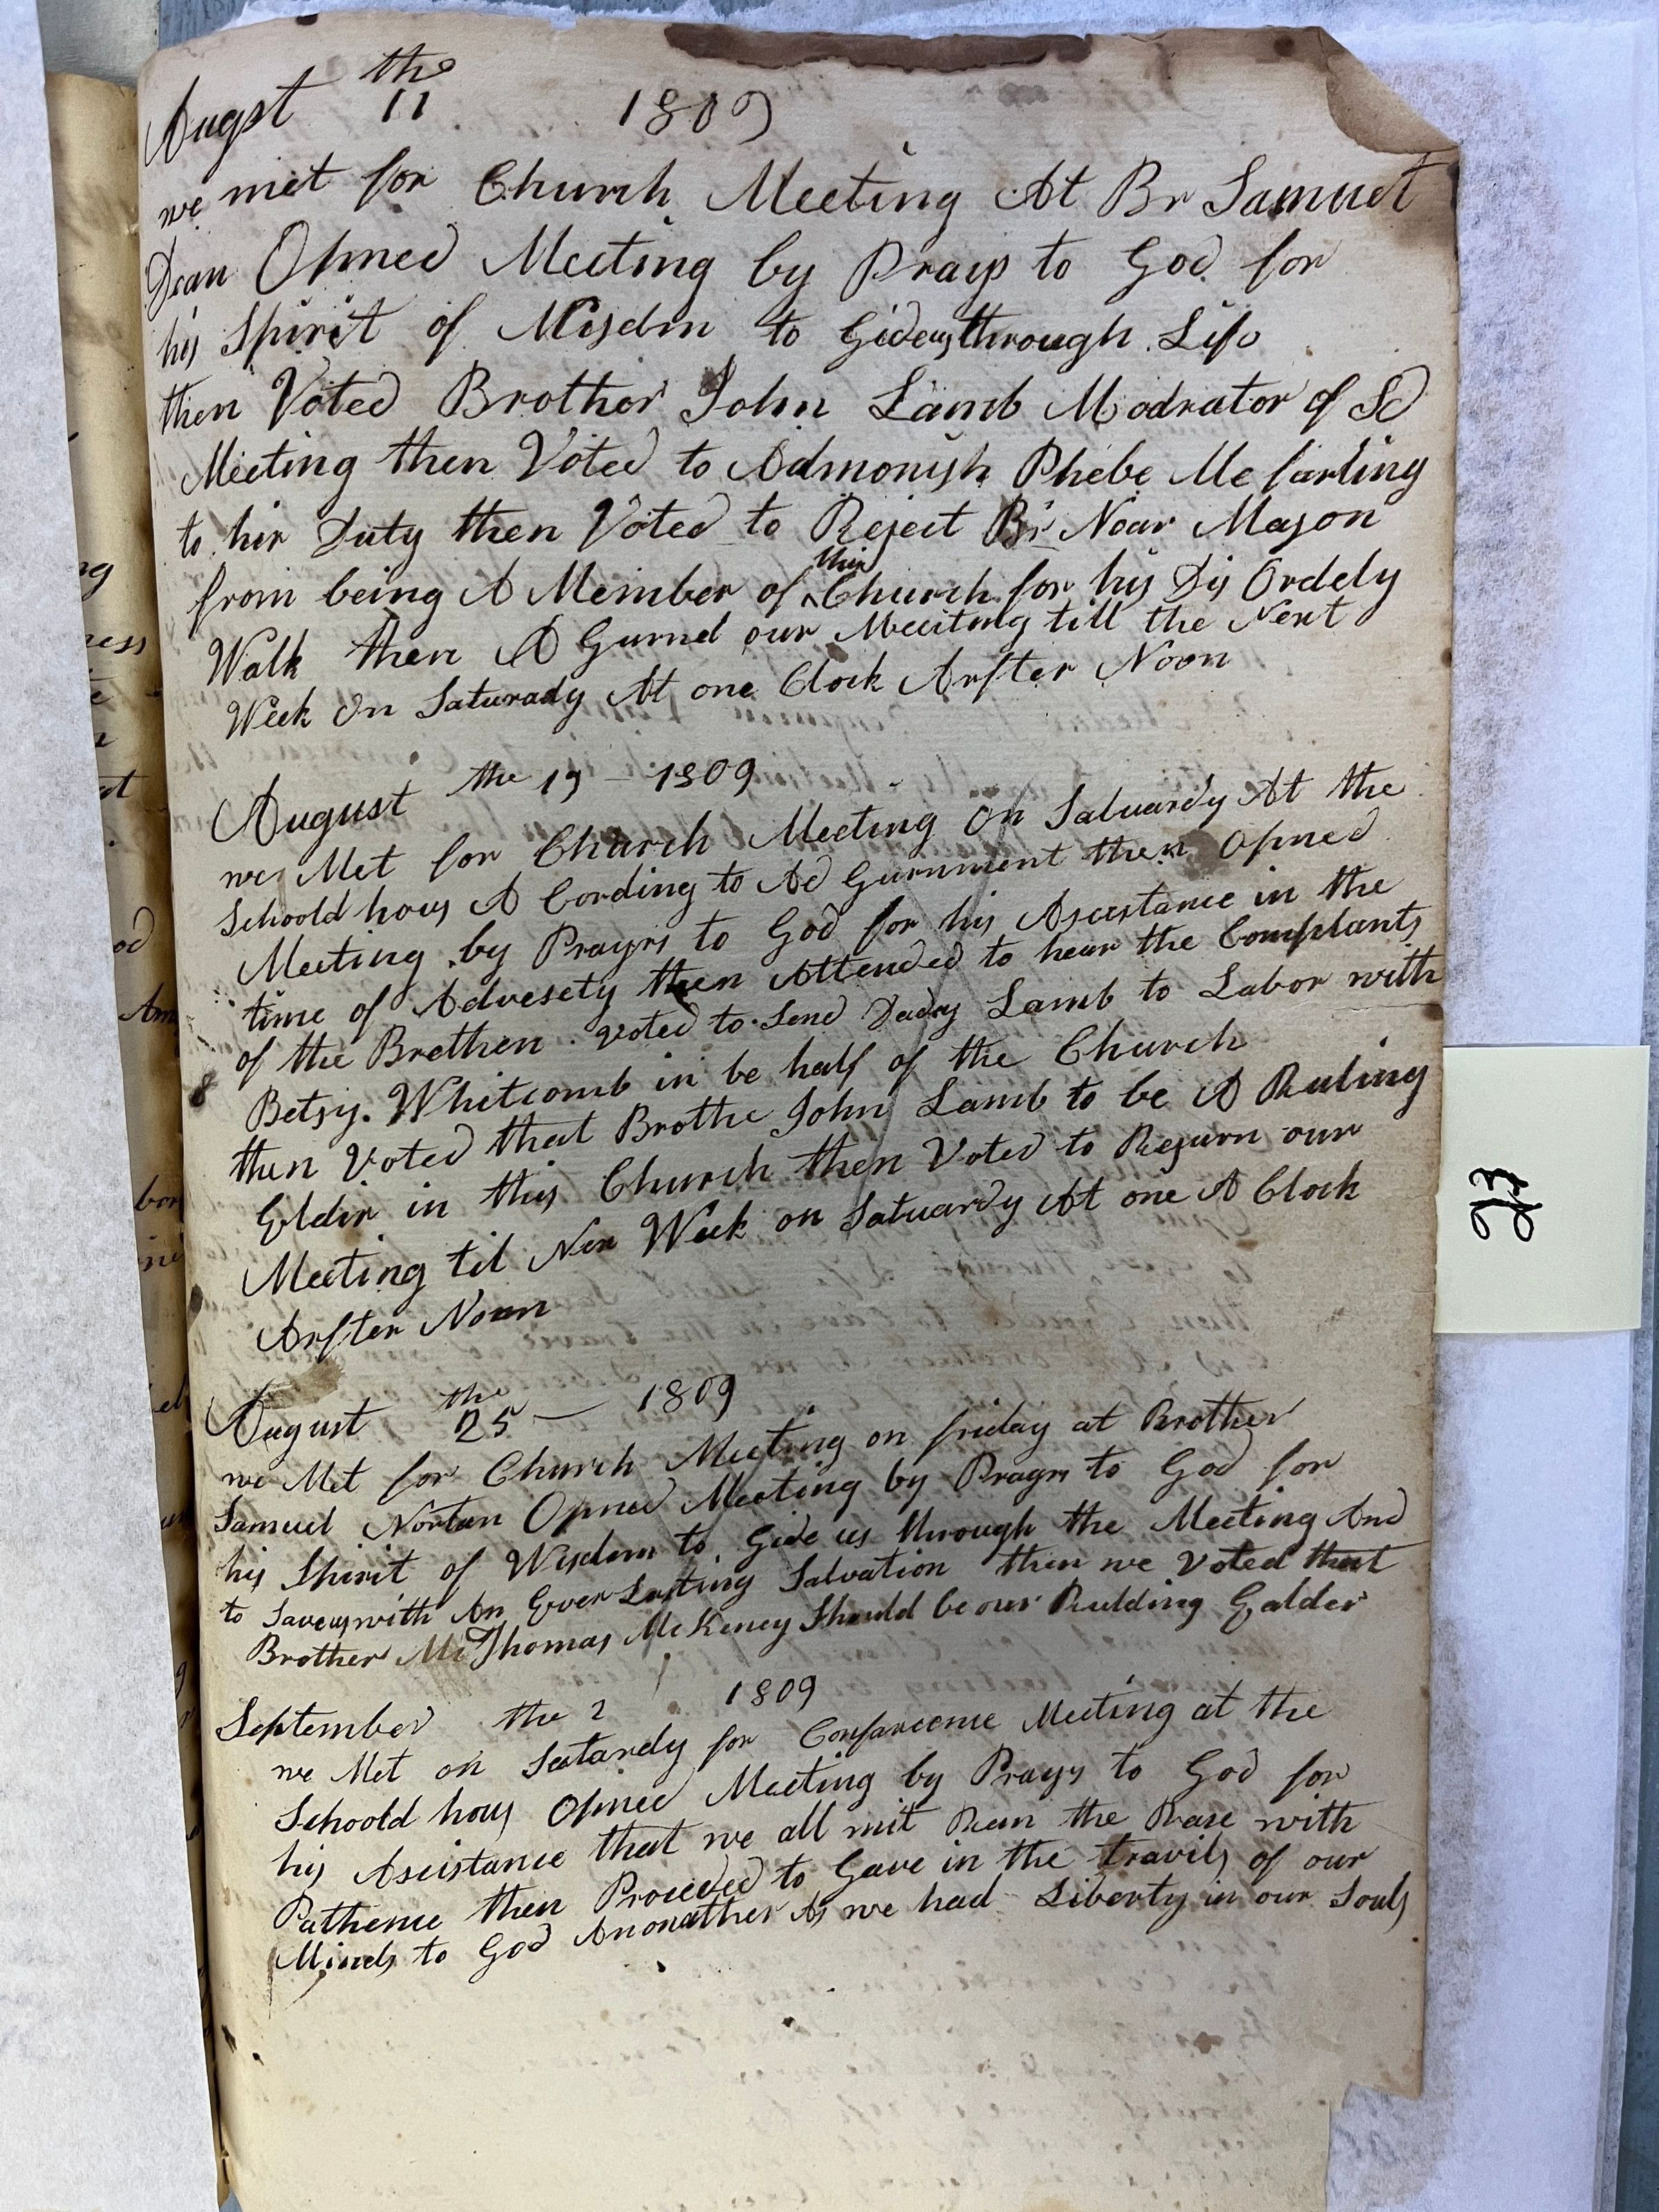 Augst the 11 1809
we met for Church Meeting At Br Samuel
Dean Opned Meeting by Prays to God for
his Spirit of Wisdm to Gideusthrough Life
then Voted Brother John Lamb Modrator of Sd
Meeting then Voted to Admonish Phebe Mc farling
to hir Duty then Voted to Reject Br Noar Mason
from being A Member of this Church for his Dis Ordely
Walk then A Gurnd our Meeitng till the Next
Week On Saturady At one Clock Arfter Noon
August the 19 - 1809
we Met for Church Meeting On Satuardy At the
Schoold hous A Cording to Ad Gurnment then Opned
Meeting by Prayrs to God for his Ascistance in the
time of Advesety then Attended to hear the Complants
of the Brethen Voted to Send Dacy Lamb to Labor with
Betsy Whitcomb in be half of the Church
then Voted that Brothe John Lamb to be A Ruling
Eldir in this Church then Voted to Rejurn our
Meeting til Nex Week on Satuardy At one A Clock
Arfter Noon
August the 25 — 1809
we Met for Church Meeting on friday at Brother
Samuel Nortan Opned Meeting by Prayrs to God for
his Spirit of Wisdom to Gide us through the Meeting And
to Saveuswith An Ever Lasting Salvation then we Voted that
Brother Mr Thomas McKeney Should be our Rulding Ealder
September the 2 1809
we Met on Satardy for Confarcence Meeting at the
Schoold hous Opned Meeting by Prays to God for
his Ascistance that we all mit Run the Rase with
Pathence then Proceded to Gave in the travils of our
Minds to God Anonather As we had Liberty in our Souls
23